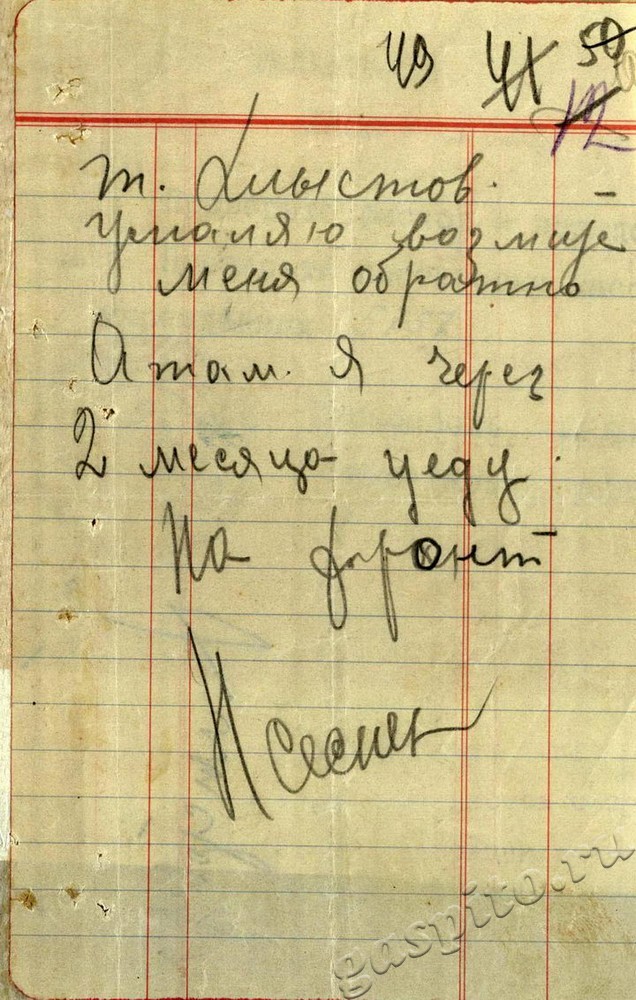 49 41 50
12
т. Хлыстов.
умаляю возмите
меня обратно
А там. Я через
2 месяца уеду.
На фронт
gaspito.ru